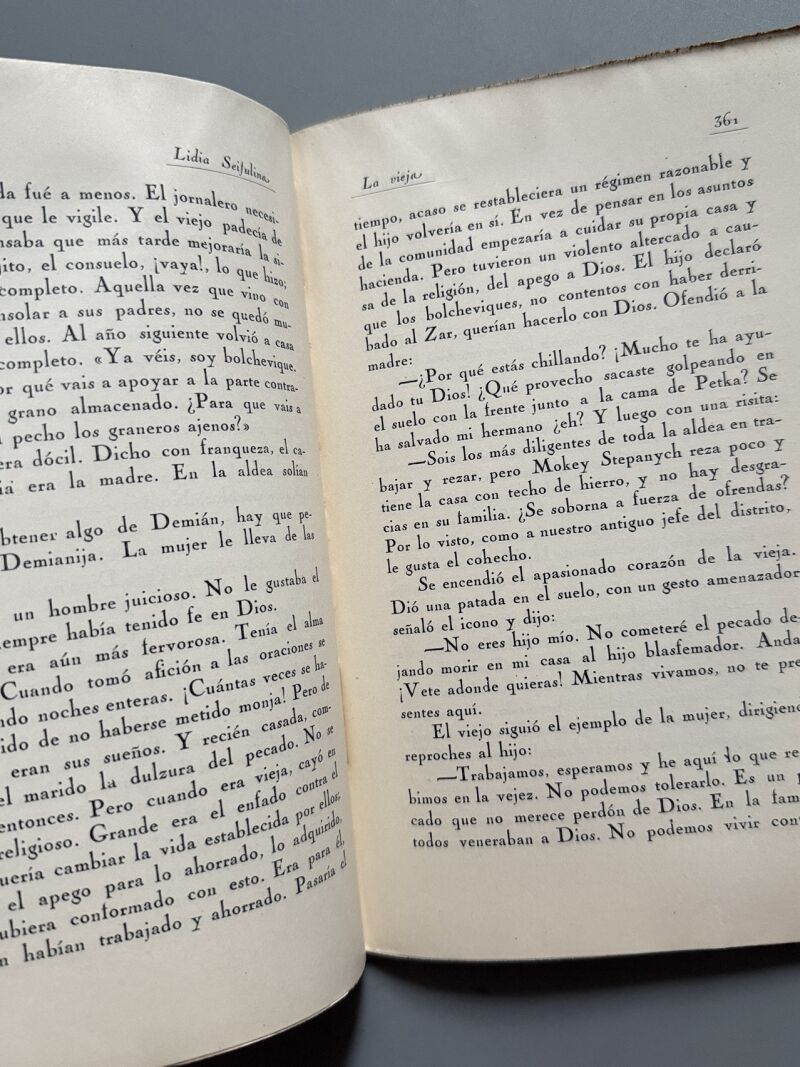 Lidia Seifulina
da fué a menos. El jornalero necesi-
que le vigile. Y el viejo padecía de
nsaba que más tarde mejoraría la si-
jito, el consuelo, ¡vaya!, lo que hizo;
completo. Aquella vez que vino con
nsolar a sus padres, no se quedó mu-
ellos. Al año siguiente volvió a casa
completo. «Ya véis, soy bolchevique.
or qué vais a apoyar a la parte contra-
grano almacenado. ¿Para que vais a
pecho los graneros ajenos?»
era dócil. Dicho con franqueza, el ca-
era la madre. En la aldea solían
btener algo de Demián, hay que pe-
Demianija. La mujer le lleva de las
un hombre juicioso. No le gustaba el
iempre había tenido fe en Dios.
era aún más fervorosa. Tenía el alma
Cuando tomó afición a las oraciones se
ndo noches enteras. ¡Cuántas veces se ha-
ido de no haberse metido monja! Pero de
eran sus sueños. Y recién casada, com-
el marido la dulzura del pecado. No se
entonces. Pero cuando era vieja, cayó en
religioso. Grande era el enfado contra el
uería cambiar la vida establecida por ellos;
el apego para lo ahorrado, lo adquirido,
ubiera conformado con esto. Era para él,
n habían trabajado y ahorrado. Pasaría el
La vieja
361
tiempo, acaso se restableciera un régimen razonable y
el hijo volvería en sí. En vez de pensar en los asuntos
de la comunidad empezaría a cuidar su propia casa y
hacienda. Pero tuvieron un violento altercado a cau-
sa de la religión, del apego a Dios. El hijo declaró
que los bolcheviques, no contentos con haber derri-
bado al Zar, querían hacerlo con Dios. Ofendió a la
madre:
—¿Por qué estás chillando? ¡Mucho te ha ayu-
dado tu Dios! ¿Qué provecho sacaste golpeando en
el suelo con la frente junto a la cama de Petka? Se
ha salvado mi hermano ¿eh? Y luego con una risita:
—Sois los más diligentes de toda la aldea en tra-
bajar y rezar, pero Mokey Stepanych reza poco y
tiene la casa con techo de hierro, y no hay desgra-
cias en su familia. ¿Se soborna a fuerza de ofrendas?
Por lo visto, como a nuestro antiguo jefe del distrito,
le gusta el cohecho.
Se encendió el apasionado corazón de la vieja.
Dió una patada en el suelo, con un gesto amenazador
señaló el icono y dijo:
—No eres hijo mío. No cometeré el pecado de-
jando morir en mi casa al hijo blasfemador. Anda
¡Vete adonde quieras! Mientras vivamos, no te pre
sentes aquí.
El viejo siguió el ejemplo de la mujer, dirigien
reproches al hijo:
—Trabajamos, esperamos y he aquí lo que re
bimos en la vejez. No podemos tolerarlo. Es un p
cado que no merece perdón de Dios. En la fam
todos veneraban a Dios. No podemos vivir con